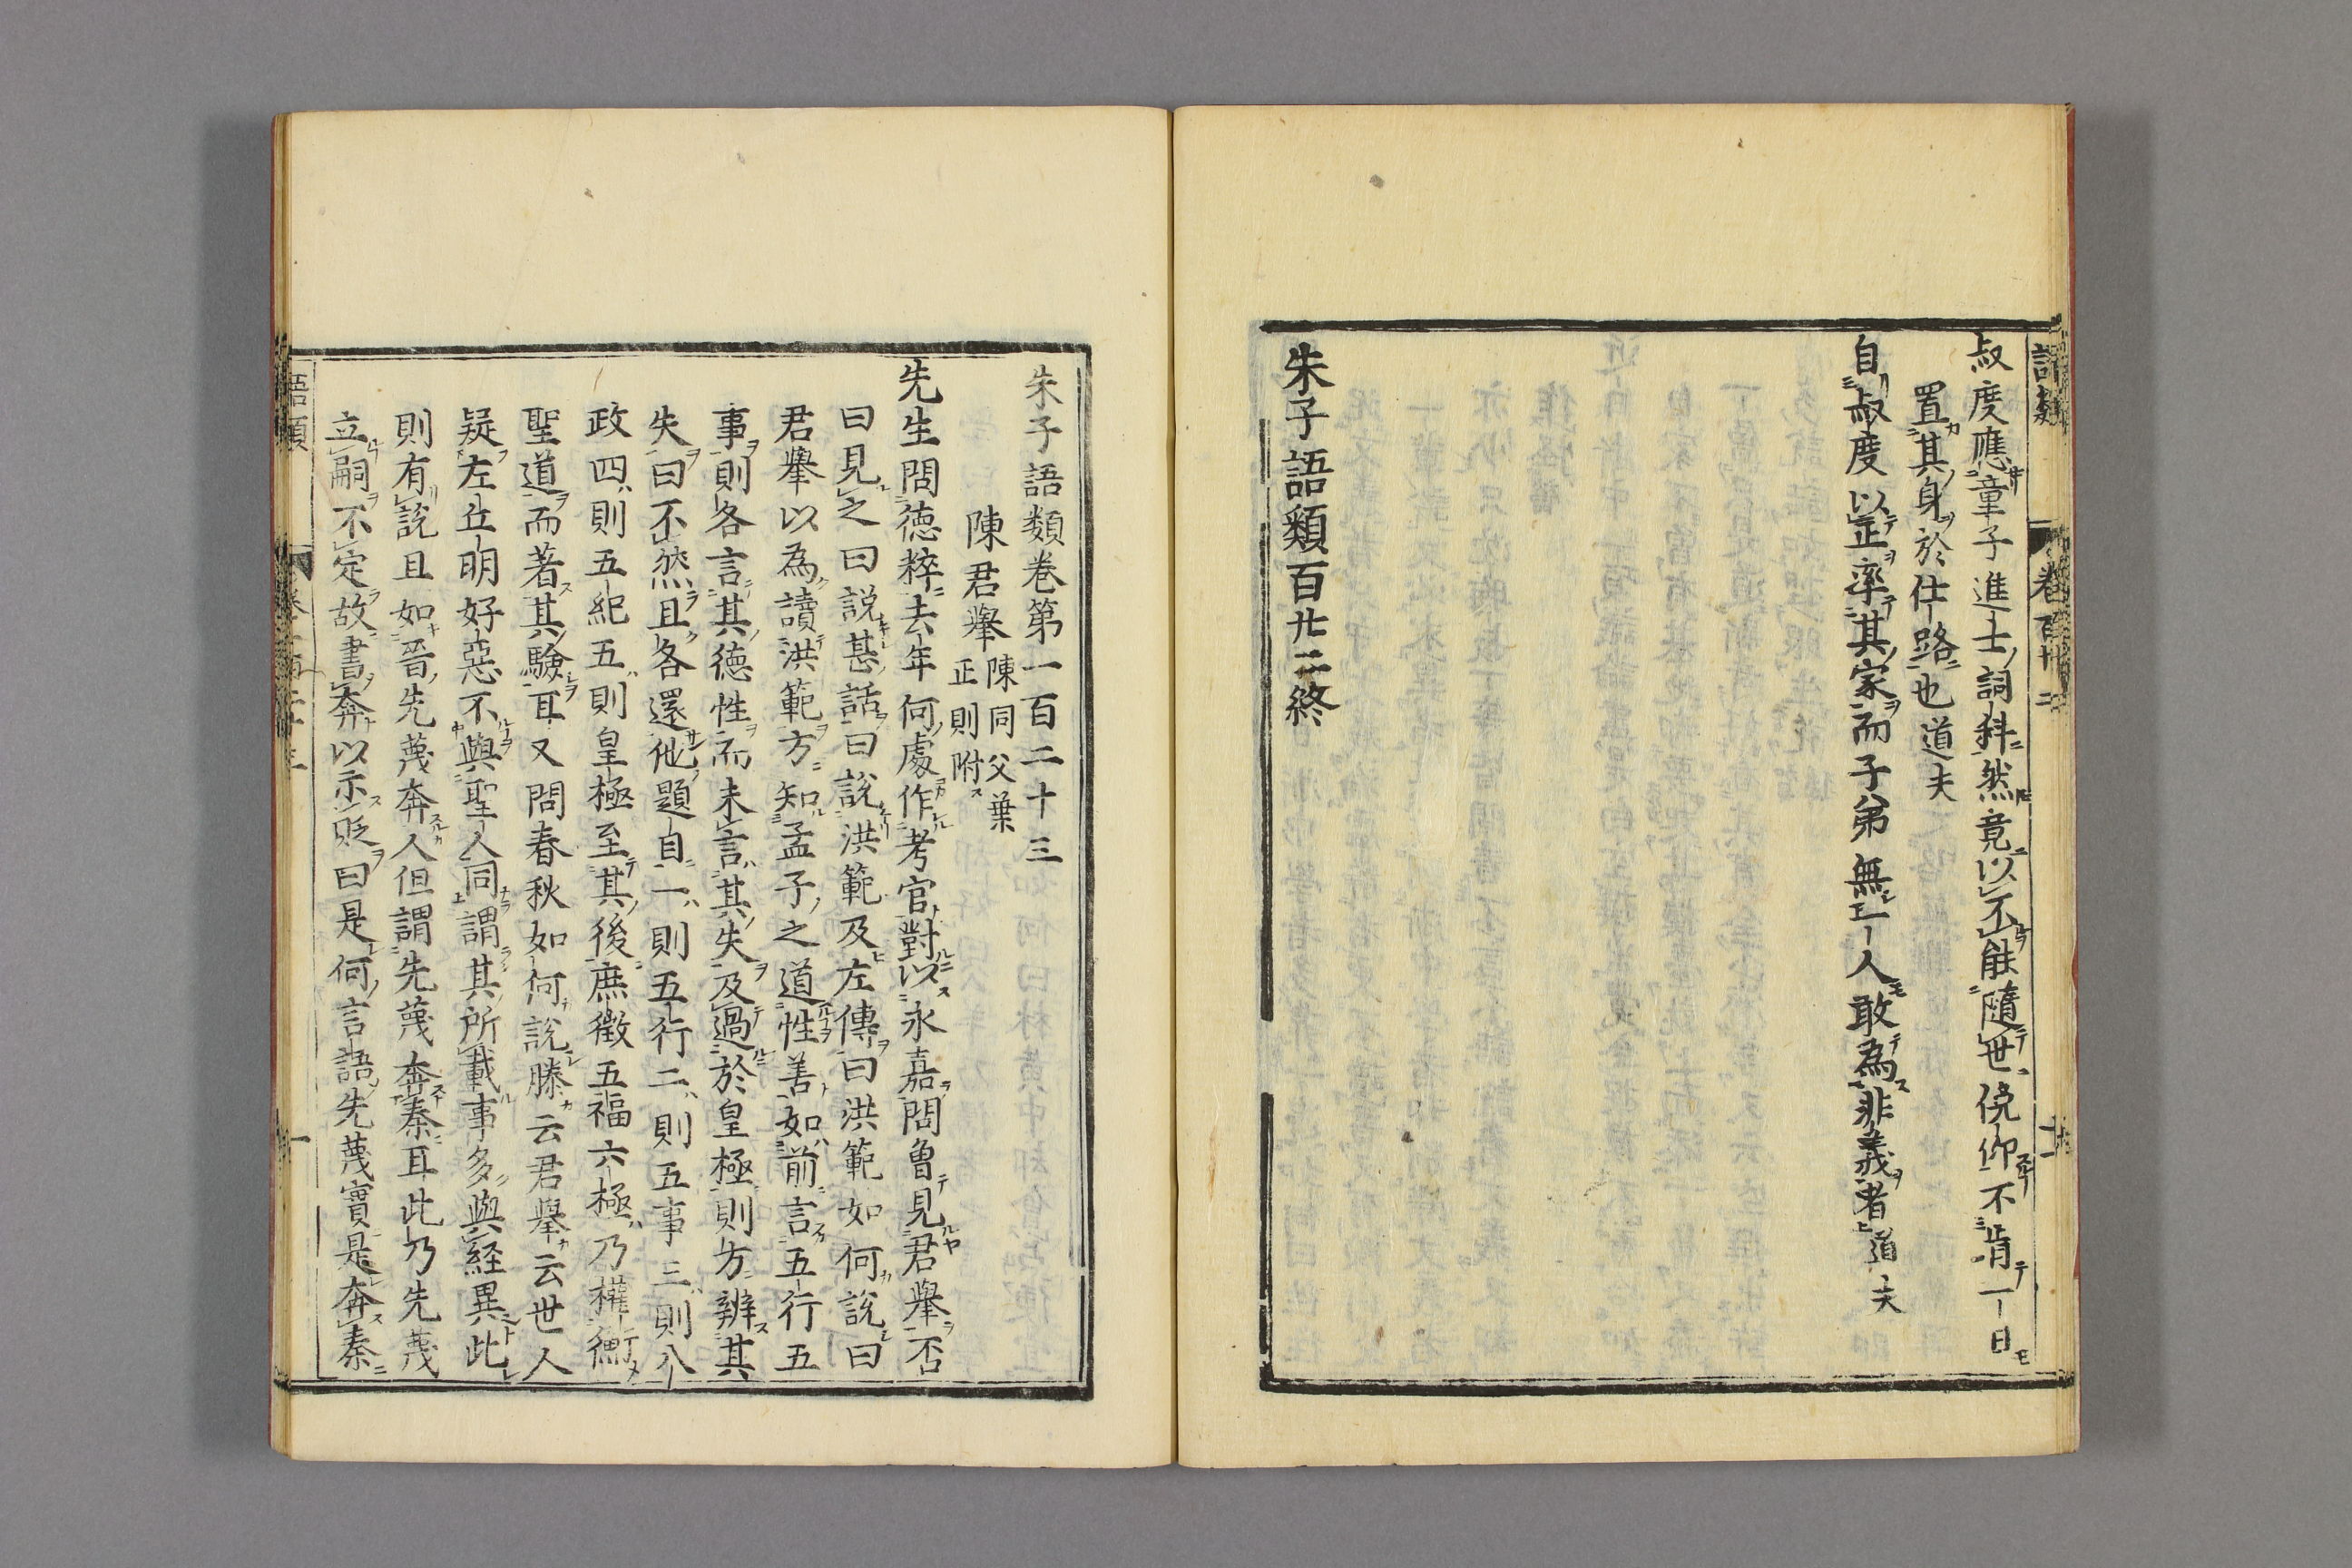 語類
卷百廿二
叔度應童子進士詞科然竟以不能隨世俛仰不肯一日
置其身於仕路也道夫
自叔度以正率其家而子弟無一人敢為非義者道夫
朱子語類百廿二終
朱子語類卷第一百二十三
陳君舉陳同父葉
正則附
先生問德粹去年何處作考官對以永嘉問曾見君舉否
曰見之曰説甚話曰説洪範及左傳曰洪範如何說曰
君舉以為讀洪範方知孟子之道性善如前言五行五
事則各言其德性而未言其失及過於皇極則方辨其
失曰不然且各還他題自一則五行二則五事三則八
政四則五紀五則皇極至其後庶徵五福六極乃權衡
聖道而著其驗耳又問春秋如何說滕云君舉云世人
疑左丘明好惡不與聖人同謂其所載事多與經異此
則有說且如晉先蔑奔人但謂先蔑奔秦耳此乃先蔑
立嗣不定故書奔以示貶曰是何言語先蔑實是奔秦
語類